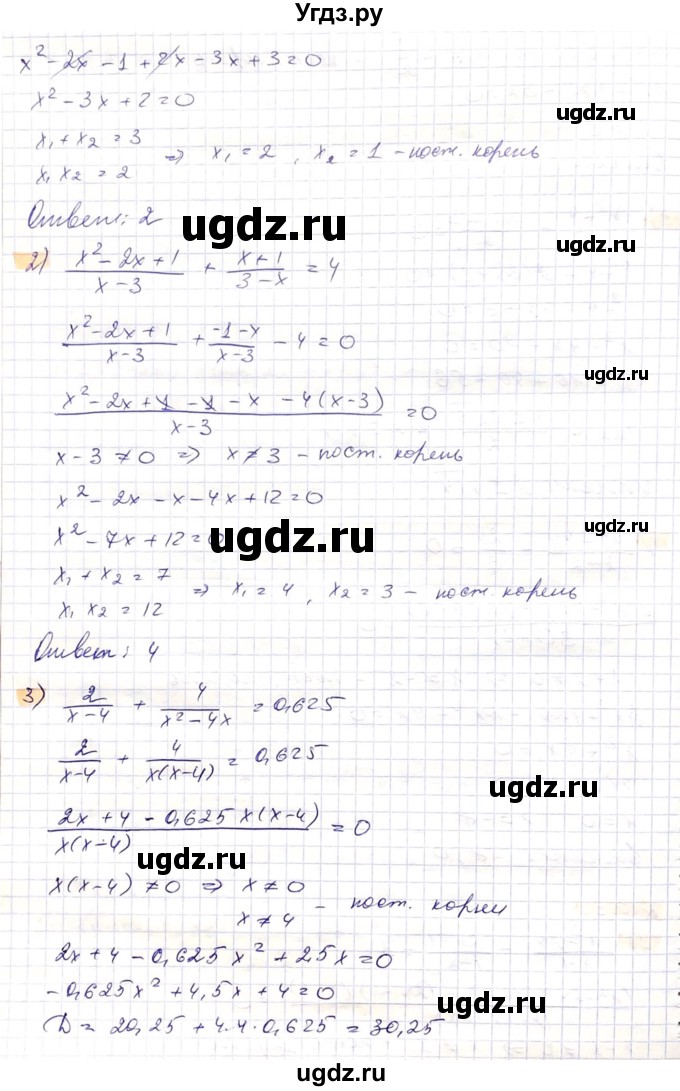 Угдз.ру
x² - 2x - 1 + 2x - 3x + 3 = 0
x² - 3x + 2 = 0
x₁ + x₂ = 3
x₁ x₂ = 2
⇒ x₁ = 2, x₂ = 1 - пост. корень
ugdz.ru
Ответ: 2
ugdz.ru
ugdz.ru
2) (x² - 2x + 1)/(x - 3) + (x + 1)/(3 - x) = 4
(x² - 2x + 1)/(x - 3) + (-1 - x)/(x - 3) - 4 = 0
ugdz.ru
(x² - 2x + 1 - 1 - x - 4(x - 3))/(x - 3) = 0
x - 3 ≠ 0 ⇒ x ≠ 3 - пост. корень
x² - 2x - x - 4x + 12 = 0
ugdz.ru
ugdz.ru
x² - 7x + 12 = 0
x₁ + x₂ = 7
x₁ x₂ = 12
⇒ x₁ = 4, x₂ = 3 - пост. корень
Ответ: 4
ugdz.ru
3) 2/(x - 4) + 4/(x² - 4x) = 0,625
2/(x - 4) + 4/(x(x - 4)) = 0,625
ugdz.ru
(2x + 4 - 0,625x(x - 4))/(x(x - 4)) = 0
ugdz.ru
x(x - 4) ≠ 0 ⇒ x ≠ 0
x ≠ 4 - пост. корни
2x + 4 - 0,625x² + 2,5x = 0
-0,625x² + 4,5x + 4 = 0
ugdz.ru
D = 20,25 + 4·4·0,625 = 30,25